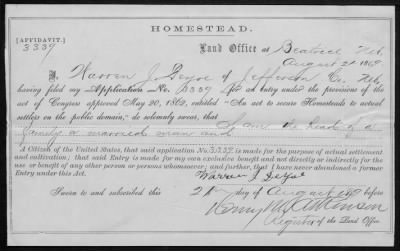 HOMESTEAD.
[AFFIDAVIT.]
3339
Land Office at Beatrice Neb.
August 2d 1869
I, Warren J. Deyoe of Jefferson Co. Neb,
having filed my Application No. 3339 for an entry under the provision of the
act of Congress approved May 20, 1862, entitled "An act to secure Homesteads to actual
settlers on the public domain," do solemnly swear, that I am the head of a
family a married man and
A Citizen of the United States, that said application No. 3339 is made for the purpose of actual settlement
and cultivation; that said Entry is made for my own exclusive benefit and not directly or indirectly for the
use or benefit of any other person or persons whomsoever; and further, that I have never abandoned a former
Entry under this Act.
Warren J Deyoe
Sworn to and subscribed this 2d day of August 1869 before
Henry M. Atkinson
Register of the Land Office